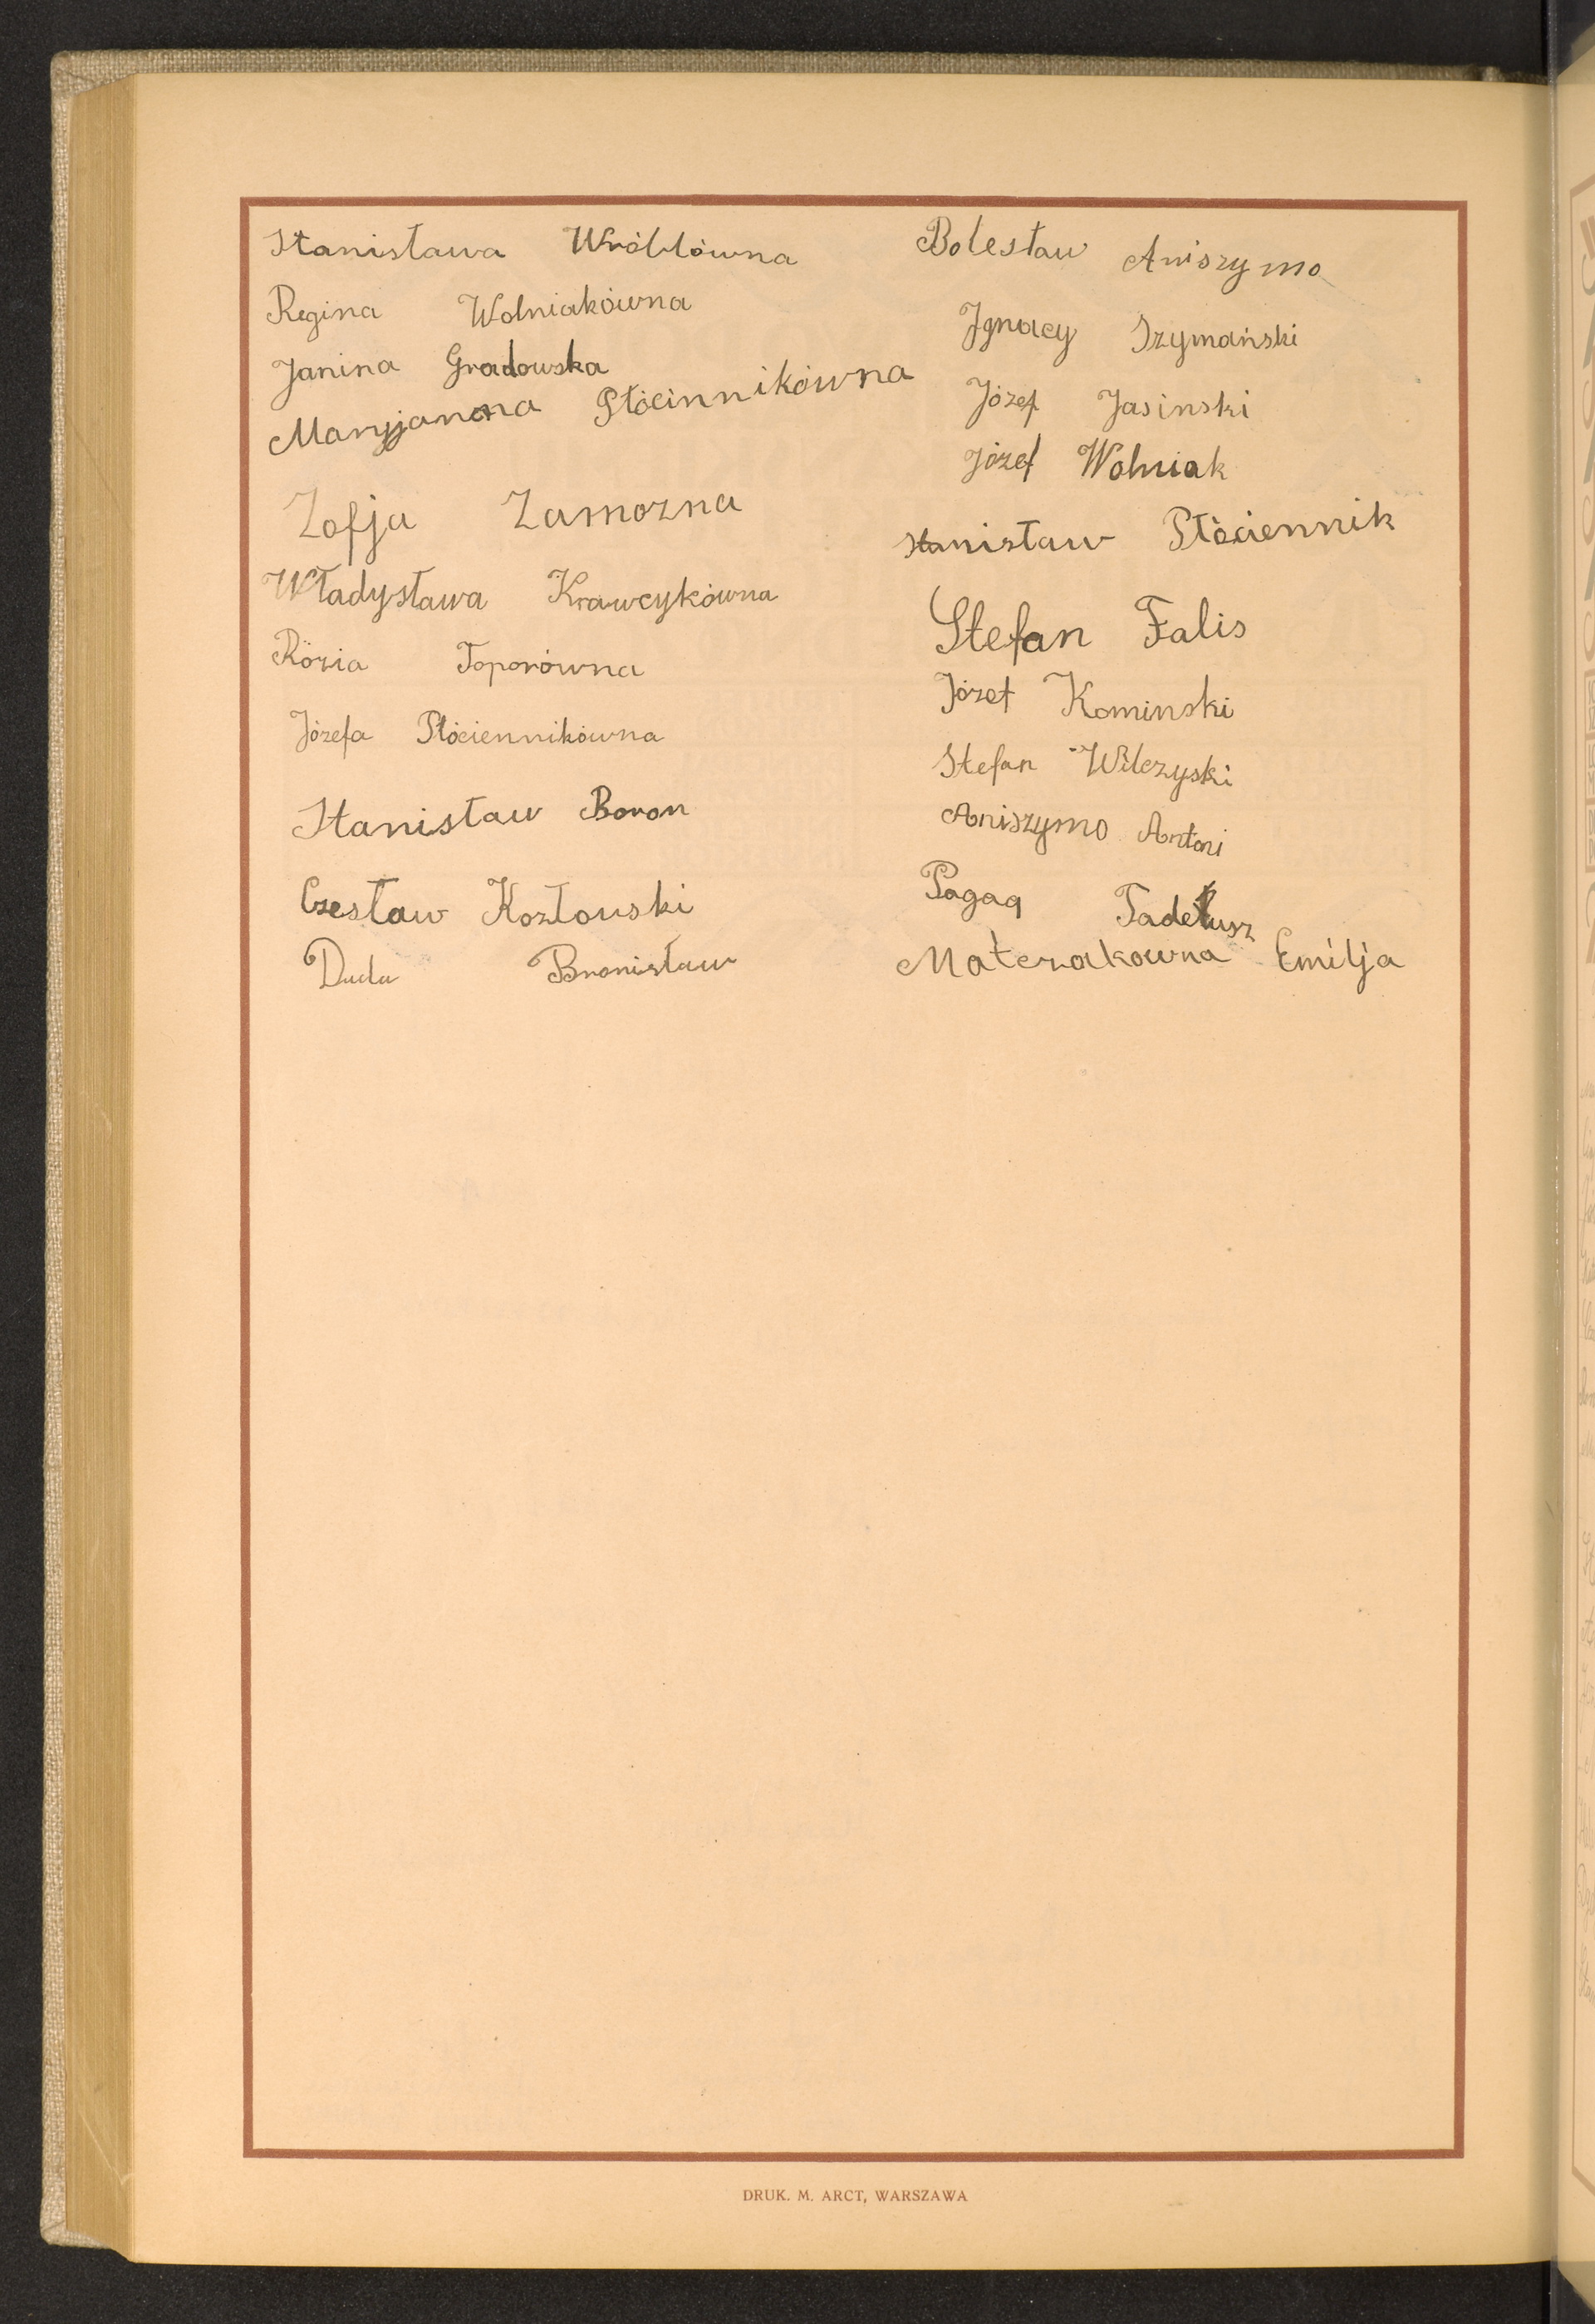 Stanisława Wróblówna
Regina Wolniakówna
Janina Gradowska
Maryjanna Płócinnikówna
Zofja Zamozna
Władysława Krawcykówna
Rózia Toporówna
Józefa Płóciennikówna
Stanisław Boron
Czesław Kozłowski
Duda Bronisław
Bolesław Aniszymo
Ignacy Szymański
Józef Jasinski
Józef Wolniak
Stanisław Płóciennik
Stefan Falis
Józef Kominski
Stefan Wilczyski
Aniszymo Antoni
Tadeusz
Materakowna Emilja
DRUK. M. ARCT, WARSZAWA